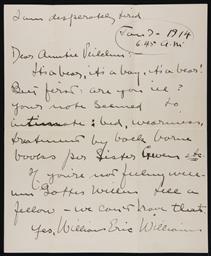 I am desperately tired
Jan 7 - 1914
6.45 a.m.
Dear Auntie
It's a bear, it's a boy, it's a bear!
But first: are you ill?
Your note seemed to
intimate: bed, weariness,
treatment by back borne
books per Sister Gwen - etc.
If you're not feeling well -
tell a
fellow - we can't have that.
Yes, William Eric Williams